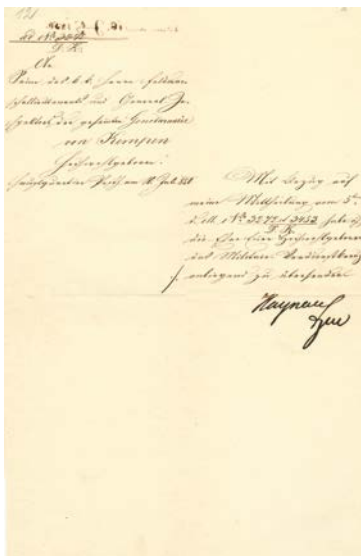 121
ad № 3053
D. K.
An
Seine des k. k. Herrn Feldmar-
schalllieutenants und General In-
spektors der gesamten Gendarmerie
von Kempen
Hochwohlgeboren.
Hauptquartier Pesth am 10. Juli 850
Mit Bezug auf
meine Mittheilung vom 5ten
d. M. № 3272 et 3453 habe ich
D. K.
die Ehre Euer Hochwohlgeboren
das Militär Verdienstkreuz
anliegend zu übersenden
Haynau